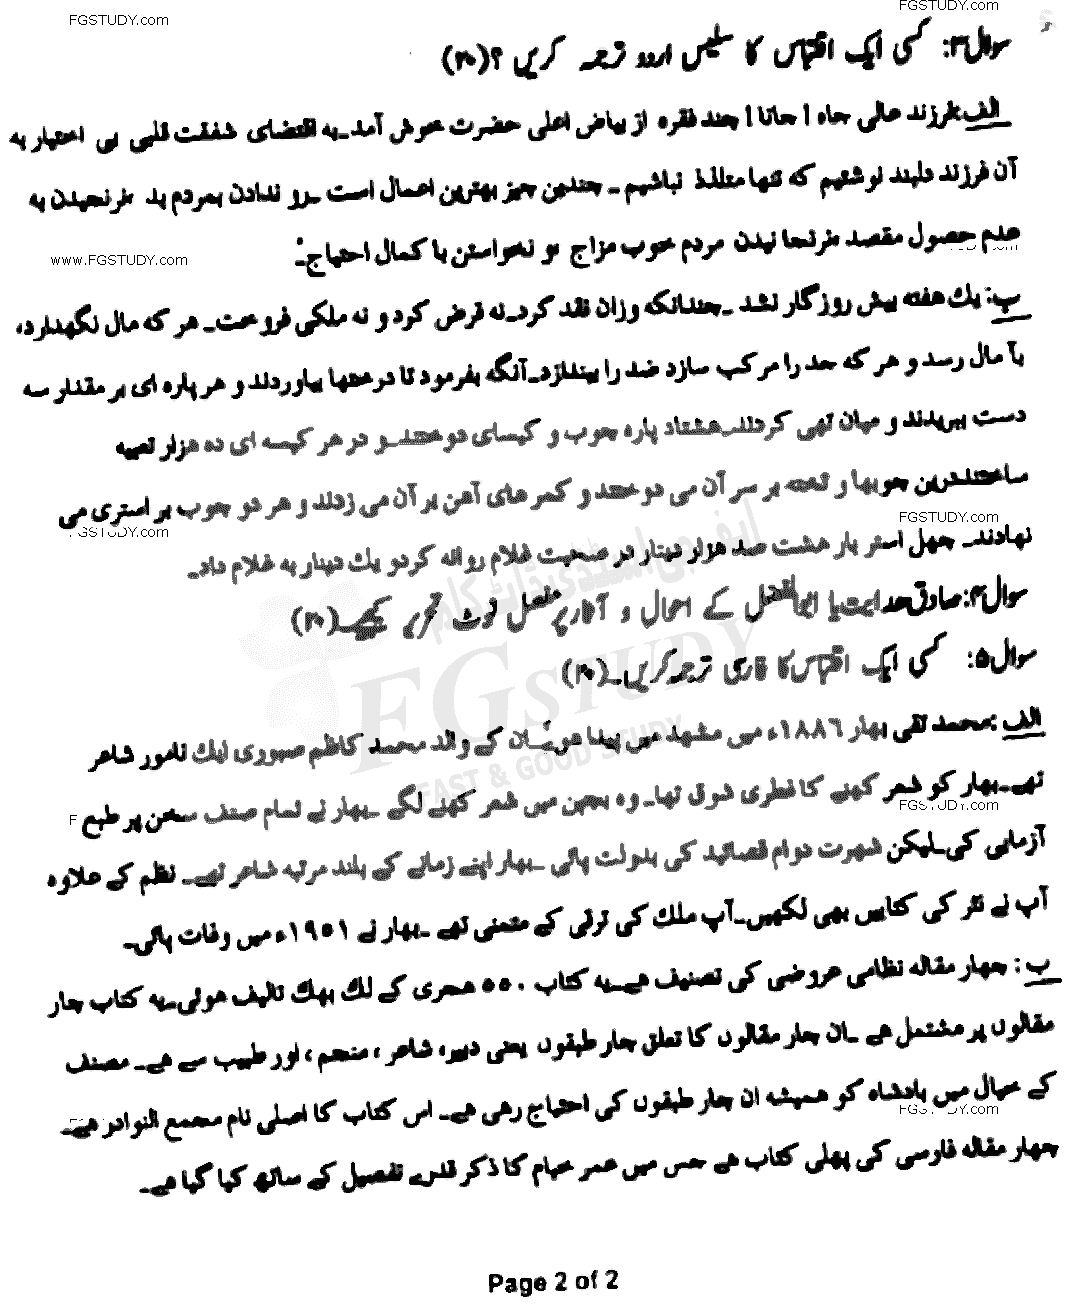 FGSTUDY.com
FGSTUDY.com
سوال ۳: کسی ایک اقتباس کا سلیس اردو ترجمہ کریں ؟ (۲۰)
الف: فرزند عالی جاہ ! جانا ! چند فقرہ از بیاض اعلی حضرت خوش آمد۔ بہ اقتضای شفقت قلبی بی اختیار بہ
آن فرزند دلبند نوشتیم کہ تنہا متلذذ نباشیم ۔ چندین چیز بہترین اعمال است ۔ رو ندادن بمردم بد
عدم حصول مقصد مردم خوب مزاج نخواستن با کمال احتیاج۔
www.FGSTUDY.com
ب: یک ھفتہ بیش روزگار نشد ۔ چندانکہ وزان نقد کرد۔ نہ قرض کرد و نہ ملکی فروخت۔ ھر کہ مال نگھدارد،
بآ مال رسد و ھر کہ حد را مرکب سازد ضد را بیندازد۔ آنگہ بفرمود تا درختہا بیاوردند و ھر پارہ ای بر مقدار سہ
دست ببریدند و میان تھی کردند۔ ھشتاد پارہ چوب و کیسای دوختند۔ و در ھر کیسہ ای دہ ھزار تعبیہ
ساختند۔ چوبھا و تختہ بر سر آن می دوختند و کمر ھای آھن بر آن می زدند و ھر دو چوب بر استری می
FGSTUDY.com
FGSTUDY.com
نھادند۔ چھل استر بار ھشت صد ھزار دینار در صحبت غلام روانہ کرد و یک دینار بہ غلام داد۔
سوال ۴: صادق ھدایت یا ابوالفضل کے احوال و آثار پر مفصل نوٹ تحریر کیجیے۔ (۲۰)
سوال ۵: کسی ایک اقتباس کا فارسی ترجمہ کریں۔ (۲۰)
ایف جی اسٹڈی ڈاٹ کام
FGSTUDY
FAST & GOOD STUDY
الف: محمد تقی بھار ۱۸۸۶ء میں مشھد میں پیدا ھوئے۔ ان کے والد محمد کاظم صبوری ایک نامور شاعر
تھے۔ بھار کو شعر کھنے کا فطری شوق تھا۔ وہ بچپن میں شعر کھنے لگے ۔ بھار نے تمام صنف سخن پر طبع
FGSTUDY.com
آزمایی کی۔ لیکن شھرت دوام قصائید کی بدولت پائی ۔ بھار اپنے زمانے کے بلند مرتبہ شاعر تھے۔ نظم کے علاوہ
آپ نے نثر کی کتابیں بھی لکھیں۔ آپ ملک کی ترقی کے متمنی تھے ۔ بھار نے ۱۹۵۱ء میں وفات پائی۔
ب: چھار مقالہ نظامی عروضی کی تصنیف ھے۔ یہ کتاب ۵۵۰ ھجری کے لگ بھگ تالیف ھوئی۔ یہ کتاب چار
مقالوں پر مشتمل ھے ۔ ان چار مقالوں کا تعلق چار طبقوں یعنی دبیر، شاعر ، منجم ، اور طبیب سے ھے۔ مصنف
کے خیال میں بادشاہ کو ھمیشہ ان چار طبقوں کی احتیاج رھی ھے۔ اس کتاب کا اصلی نام مجمع النوادر ھے۔
FGSTUDY.com
چھار مقالہ فارسی کی پھلی کتاب ھے جس میں عمر خیام کا ذکر قدرے تفصیل کے ساتھ کیا گیا ھے۔
Page 2 of 2